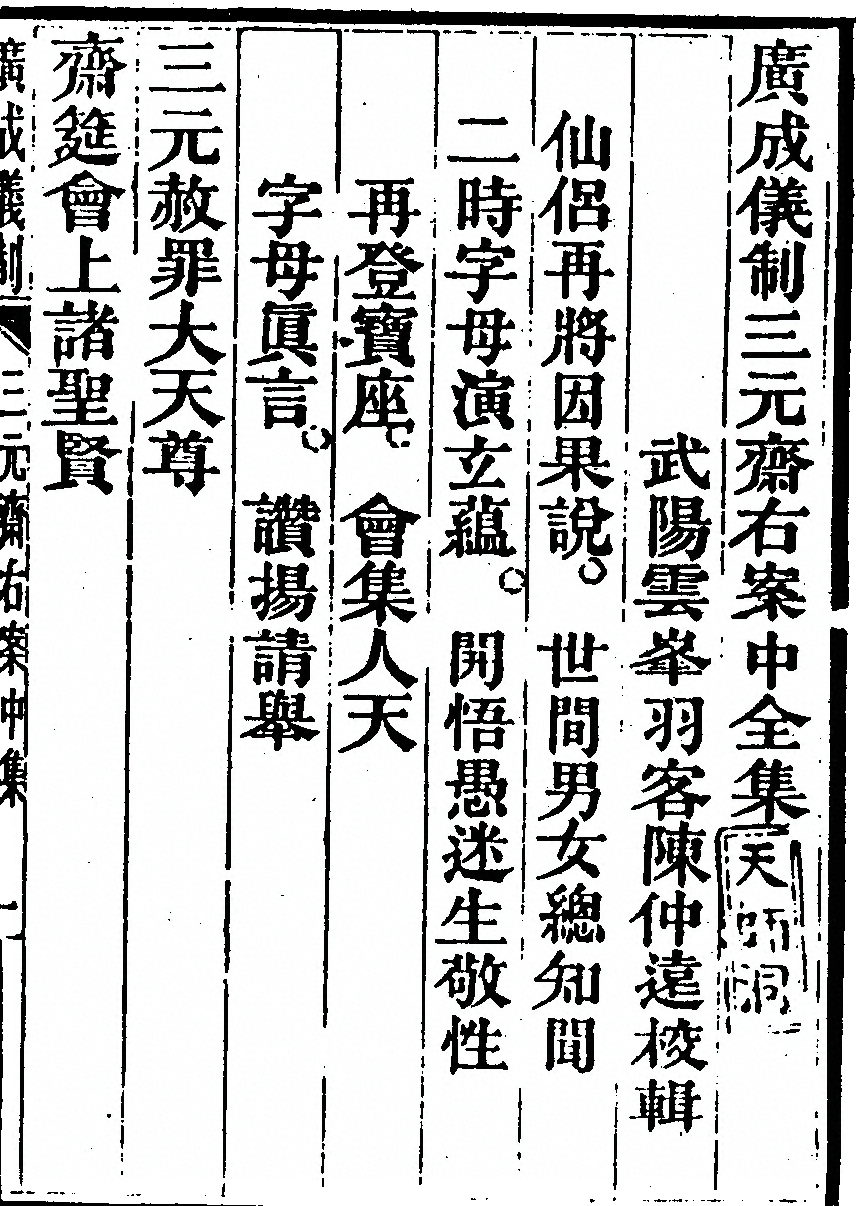 廣成儀制三元齋右案中全集 天師洞
武陽雲峯羽客陳仲遠校輯
仙侶再將因果說。世間男女總知聞
二時字母演立蘊。開悟愚迷生敬性
再登寶座。會集人天
字母眞言。讚揚請舉
三元赦罪大天尊
齋筵會上諸聖賢
廣成儀制 三元齋右案中集 一